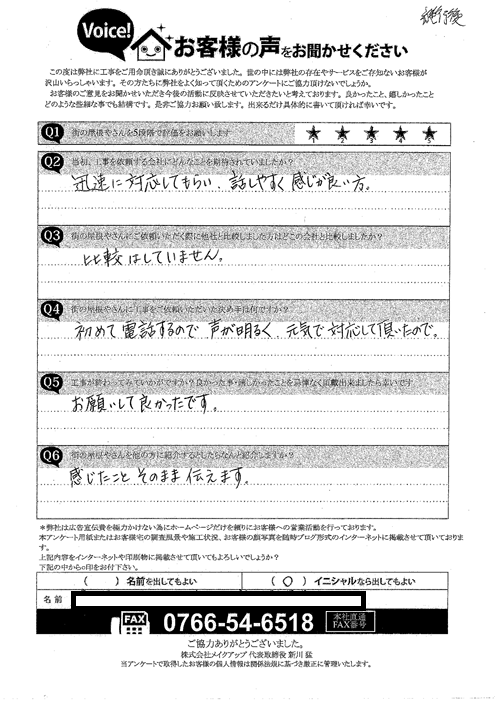 Voice!
お客様の声をお聞かせください
この度は弊社に工事をご用命頂き誠にありがとうございました。世の中には弊社の存在やサービスをご存知ないお客様が
沢山いらっしゃいます。その方たちに弊社をよく知って頂くためのアンケートにご協力頂けないでしょうか。
お客様のご意見をお聞かせいただき今後の活動に反映させていただきたいと考えております。良かったこと、嬉しかったこと
どのような些細な事でも結構です。是非ご協力お願い致します。出来るだけ具体的に書いて頂ければ幸いです。
Q1 街の屋根やさんを5段階で評価をお願いします
★ ★ ★ ★ ★
1 2 3 4 5
Q2 当初、工事を依頼する会社にどんなことを期待されていましたか?
迅速に対応してもらい、話しやすく感じが良い方。
Q3 街の屋根やさんにご依頼いただく際に他社と比較しました方はどこの会社と比較しましたか?
比較はしていません。
Q4 街の屋根やさんに工事をご依頼いただいた決め手は何ですか?
初めて電話するので声が明るく、元気で対応して頂いたので。
Q5 工事が終わってみていかがですか?良かった事・嬉しかったことを忌憚なく記載出来ましたら幸いです
お願いして良かったです。
Q6 街の屋根やさんを他の方に紹介するとしたらなんと紹介しますか?
感じたことそのまま伝えます。
*弊社は広告宣伝費を極力かけない為にホームページだけを頼りにお客様への営業活動を行っております。
本アンケート用紙またはお客様宅の調査風景や施工状況、お客様の顔写真を随時ブログ形式のインターネットに掲載させて頂いておりま
す。
上記内容をインターネットや印刷物に掲載させて頂いてもよろしいでしょうか?
下記の中から○印をお付け下さい。
( )名前を出してもよい (○)イニシャルなら出してもよい
名前
FAX 0766-54-6518 本社直通 FAX番号
ご協力ありがとうございました。
株式会社メイクアップ 代表取締役 新川 猛
当アンケートで取得したお客様の個人情報は関係法規に基づき厳正に管理いたします。